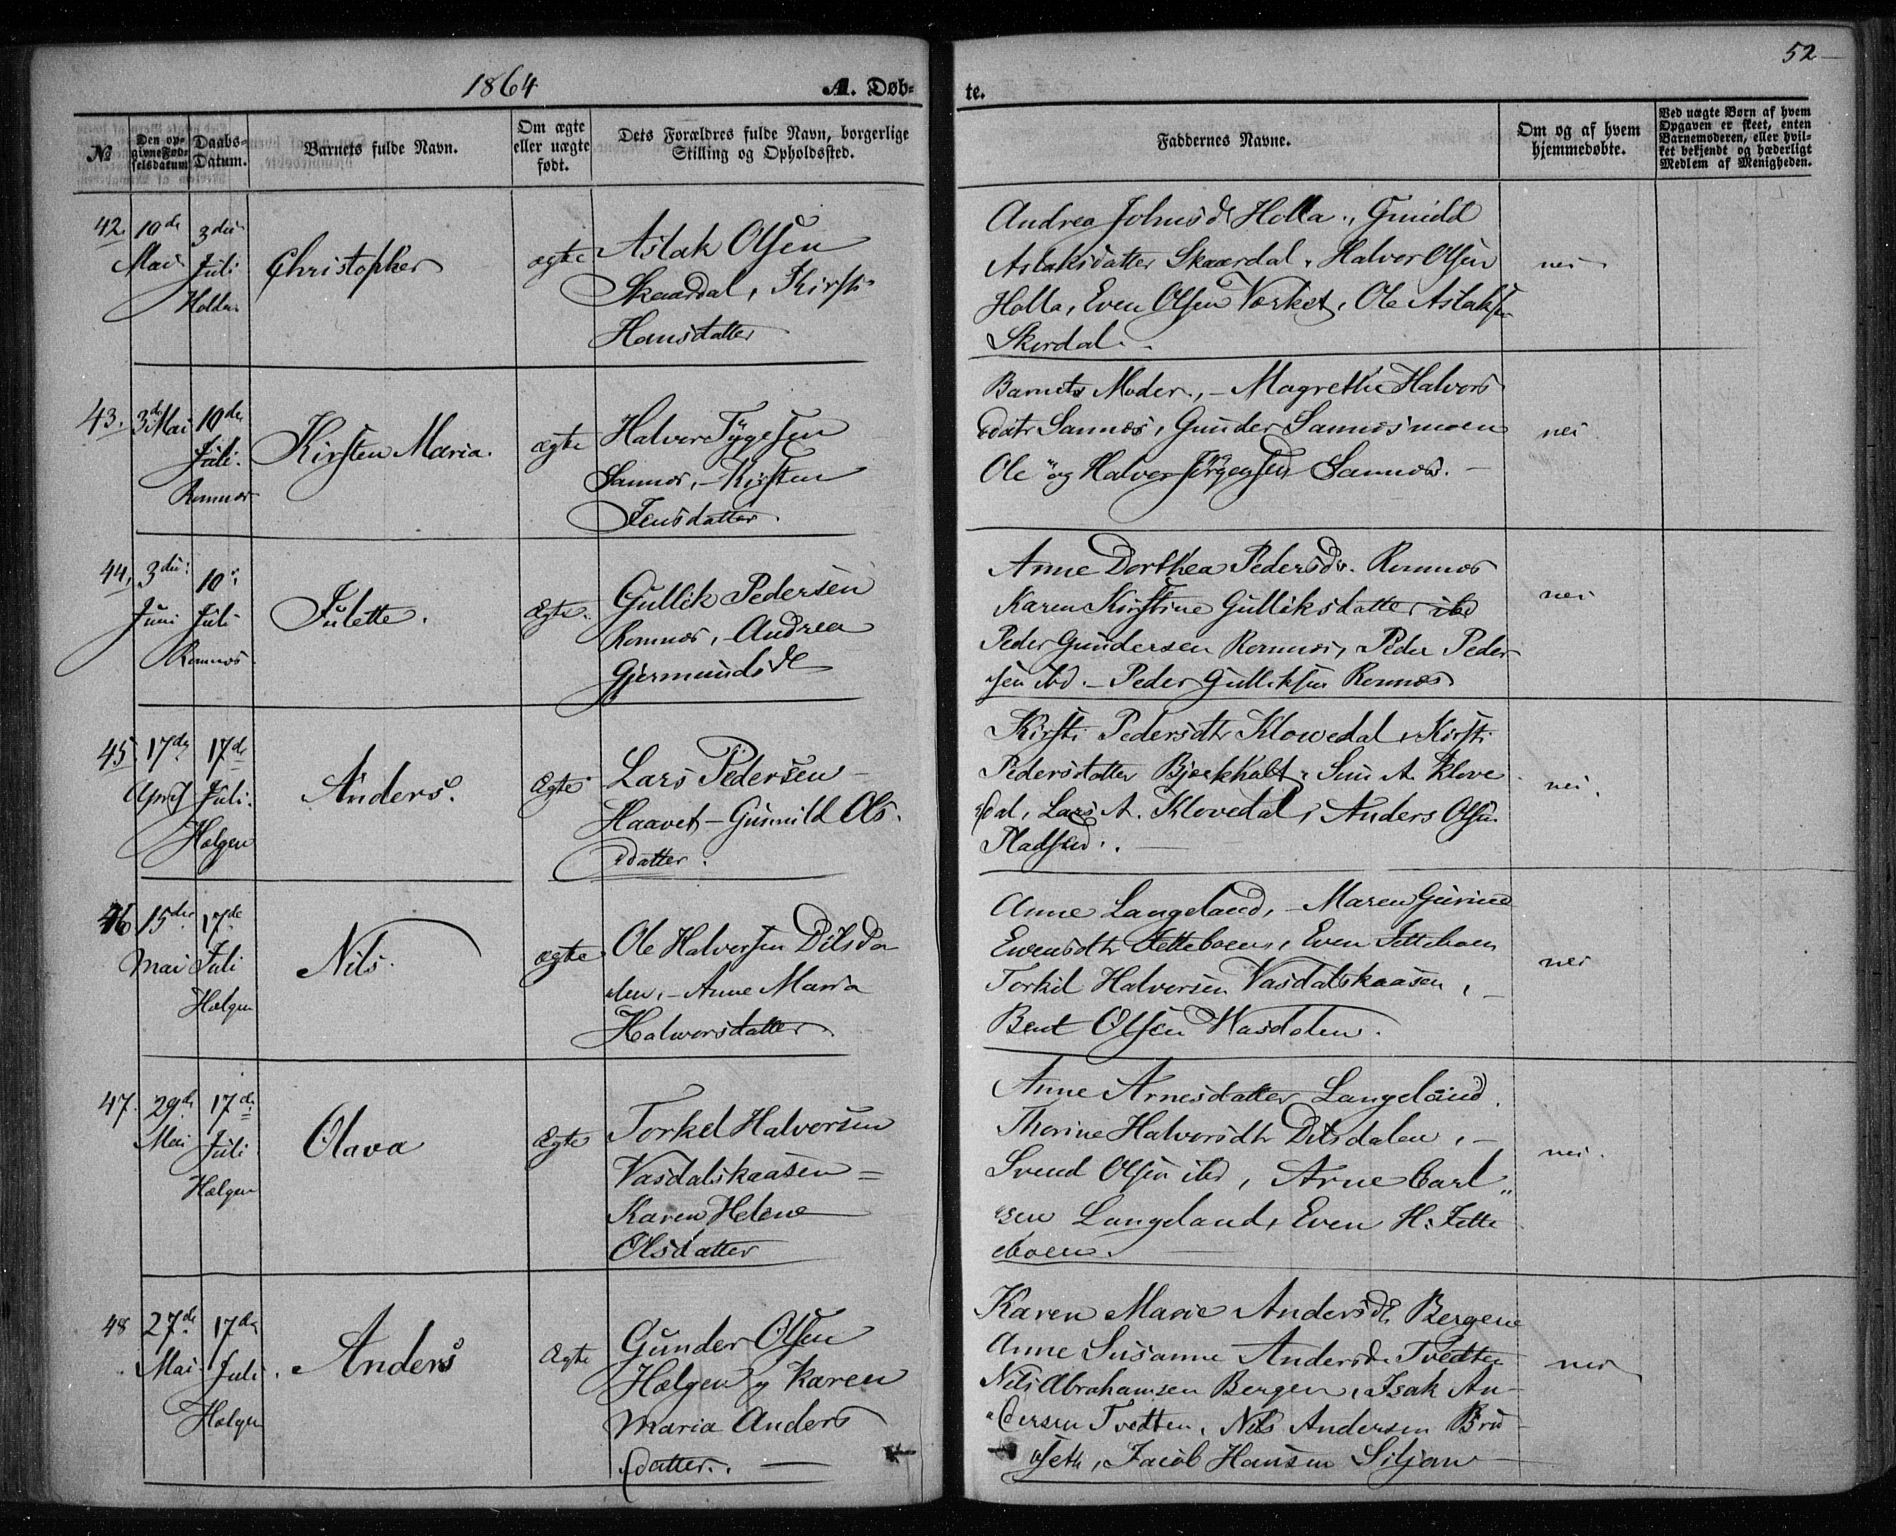 1864
A. Døb-
te.
52
№
Den op-
givne Fød-
selsdatum
Daabs-
Datum.
Barnets fulde Navn.
Om ægte
eller uægte
født.
Dets Forældres fulde Navn, borgerlige
Stilling og Opholdssted.
Faddernes Navne.
Om og af hvem
hjemmedøbte.
Ved uægte Børn af hvem
Opgaven er skeet, enten
Barnemoderen, eller hvil-
ket bekjendt og hæderligt
Medlem af Menigheden.
42.
10de
Mai
3die
Juli
Holden
Christopher
ægte
Aslak Olsen
Skaardal, Kirsti
Hansdatter
Andrea Johnsd Holla, Gunild
Aslaksdatter Skaardal, Halvor Olsen
Holla, Even Olsen Værket, Ole Aslaksen
Skordal.
nei
43.
3die Mai
10de
Juli
Romnæs
Kirsten Maria.
ægte
Halvor Tygesen
Sannæs, Kirsten
Jensdatter.
Barnets Moder, Magrethe Halvors
datr Sannæs, Gunder Sannæsmoen
Ole og Halvor Jörgensen Sannæs.
nei
44,
3die
Juni
10
Juli
Romnæs
Julette.
Ægte.
Gullik Pedersen
Romnæs, Andrea
Gjermundsdr
Anne Dorthea Pedersdr. Romnæs
Karen Kirstine Gulliksdatter ibd
Peder Gundersen Romnæs, Peder Peder
sen ibd. Peder Gulliksen Romnæs
nei
45.
17de
April
17de
Juli.
Hælgen
Anders.
Ægte
Lars Pedersen
Haavet Gunnild Ols
datter.
Kirsti Pedersdtr Klowedal, Kirsti
Pedersdatter Bjerkholt, A. Klove
dal, Lars A. Klovedal, Anders Olsen
Pladsen.
nei.
46
15de
Mai
17de
Juli
Hælgen
Nils.
ægte
Ole Halvorsen Dilsda
len, Anne Maria
Halvorsdatter
Anne Langeland, Maren Gurine
Evensdtr Tetteboen, Even Tetteboen
Torkil Halvorsen Vasdalskaasen,
Bent Olsen Wasdalen.
nei
47.
29de
Mai
17de
Juli
Hælgen
Olava
Ægte
Torkel Halvorsen
Vasdalskaasen =
Karen Helene
Olsdatter
Anne Arnesdatter Langeland,
Thorine Halvorsdtr Dilsdalen,
Svend Olsen ibd, Arne Carl
sen Langeland, Even H. Tette
boen.
nei.
48
27de
Mai
17de
Juli.
Hælgen
Anders
Ægte
Gunder Olsen
Hælgen og Karen
Maria Anders
datter.
Karen Marie Andersdr. Bergene
Anne Susanne Andersdr Tvedten
Nils Abrahamsen Bergen, Isak An-
dersen Tvedten, Nils Andersen Bru-
seth, Jacob Hansen Siljan
nei